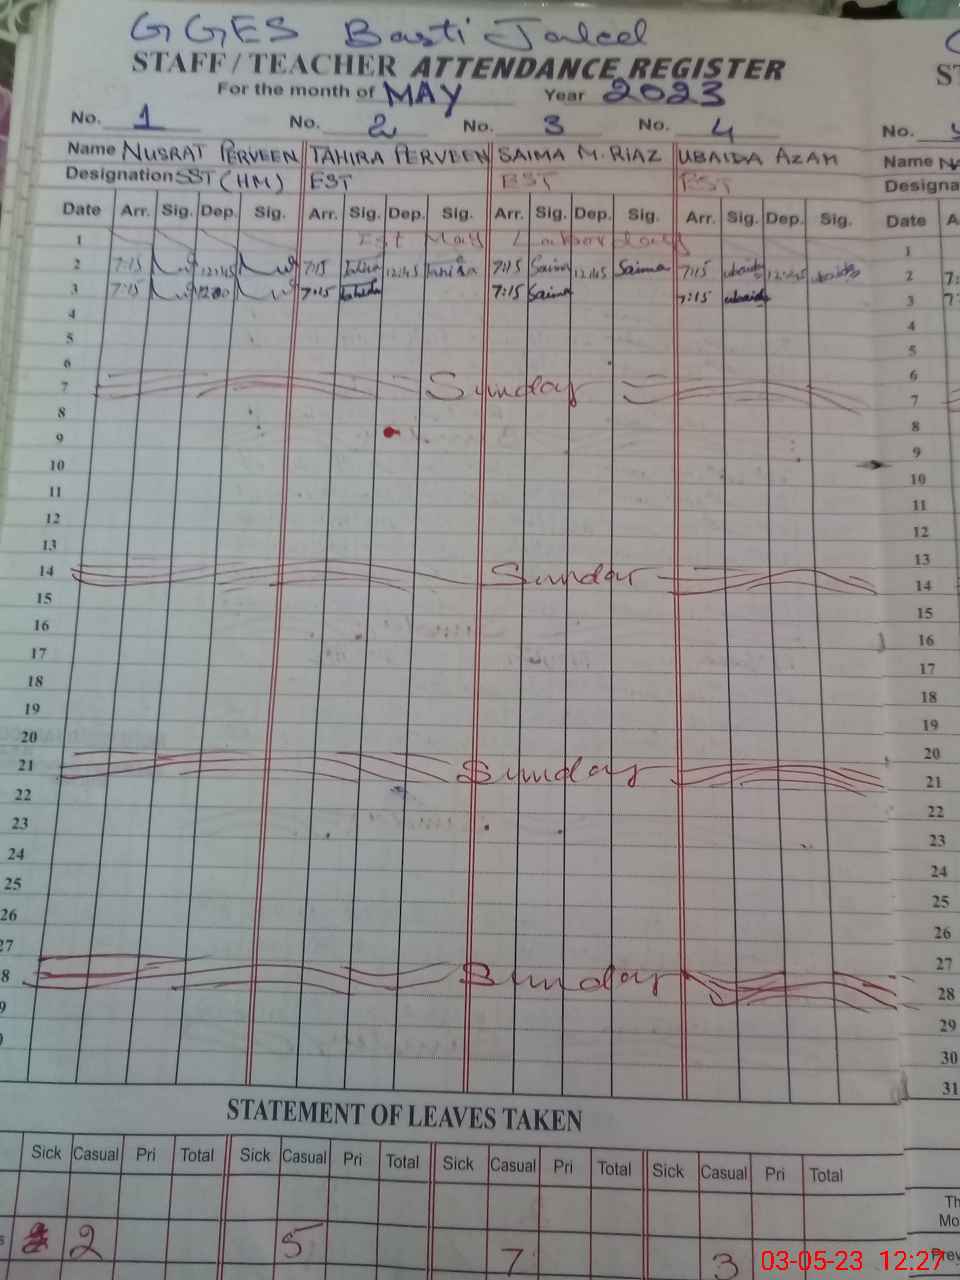 GGES Basti Jaleel
STAFF / TEACHER ATTENDANCE REGISTER
For the month of MAY Year 2023
No. 1 No. 2 No. 3 No. 4 No.
Name NUSRAT PERVEEN TAHIRA PERVEEN SAIMA M. RIAZ UBAIDA AZAM Name
Designation SST (HM) EST EST EST Designa
Date Arr. Sig. Dep. Sig. Arr. Sig. Dep. Sig. Arr. Sig. Dep. Sig. Arr. Sig. Dep. Sig. Date
1 1st May Labour day 1
2 7:15 12:45 7:15 Tahira 12:45 Tahira 7:15 Saima 12:45 Saima 7:15 ubaida 12:45 ubaida 2
3 7:15 12:00 7:15 7:15 Saima 7:15 ubaida 3
4 4
5 5
6 6
7 Sunday 7
8 8
9 9
10 10
11 11
12 12
13 13
14 Sunday 14
15 15
16 16
17 17
18 18
19 19
20 20
21 Sunday 21
22 22
23 23
24 24
25 25
26 26
27 27
8 Sunday 28
9 29
30
31
STATEMENT OF LEAVES TAKEN
Sick Casual Pri Total Sick Casual Pri Total Sick Casual Pri Total Sick Casual Pri Total
Th
Mo
2 5 7 3 Prev
03-05-23 12:27